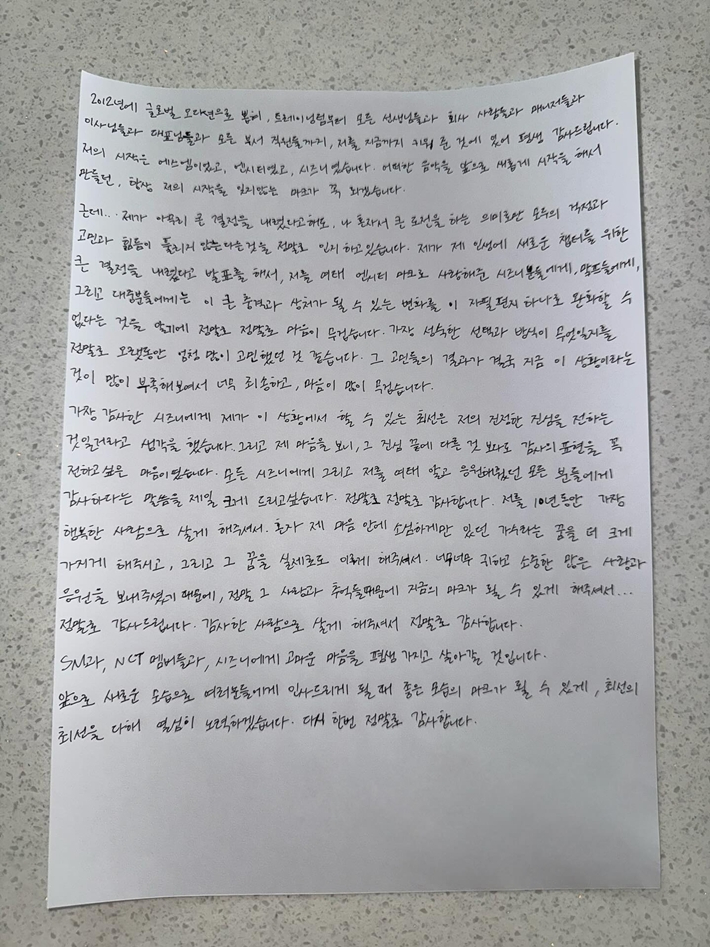 2012년에 글로벌 오디션으로 뽑혀, 트레이닝팀부터 모든 선생님들과 회사 사람들과 매니저들과
이사님들과 대표님들과 모든 부서 직원들까지, 저를 지금까지 키워 준 것에 있어 평생 감사드립니다.
저의 시작은 에스엠이었고, 엔시티였고, 시즈니였습니다. 어떠한 음악을 앞으로 새롭게 시작을 해서
만들던, 항상 저의 시작을 잊지않는 마크가 꼭 되겠습니다.
근데... 제가 아무리 큰 결정을 내렸다고해도, 나 혼자서 큰 도전을 하는 의미로만 모두의 걱정과
고민과 힘듦이 풀리지 않는다는것을 정말로 인지하고있습니다. 제가 제 인생에 새로운 챕터를 위한
큰 결정을 내렸다고 발표를 해서, 저를 여태 엔시티 마크로 사랑해준 시즈니분들에게, 맘프들에게,
그리고 대중분들에게는 이 큰 충격과 상처가 될 수 있는 변화를 이 자필편지 하나로 완화할 수
없다는 것을 알기에 정말로 정말로 마음이 무겁습니다. 가장 성숙한 선택과 방식이 무엇일지를
정말로 오랫동안 엄청 많이 고민했던 것 같습니다. 그 고민들의 결과가 결국 지금 이 상황이라는
것이 많이 부족해보여서 너무 죄송하고, 마음이 많이 무겁습니다.
가장 감사한 시즈니에게 제가 이 상황에서 할 수 있는 최선은 저의 진정한 진심을 전하는
것일거라고 생각을 했습니다. 그리고 제 마음을 보니, 그 진심 끝에 다른 것 보다도 감사의 표현을 꼭
전하고싶은 마음이었습니다. 모든 시즈니에게 그리고 저를 여태 알고 응원해줬던 모든 분들에게
감사하다는 말씀을 제일 크게 드리고싶습니다. 정말로 정말로 감사합니다. 저를 10년동안 가장
행복한 사람으로 살게 해주셔서. 혼자 제 마음 안에 소심하게만 있던 가수라는 꿈을 더 크게
가지게 해주시고, 그리고 그 꿈을 실제로도 이루게 해주셔서. 너무너무 귀하고 소중한 많은 사랑과
응원을 보내주셨기 때문에, 정말 그 사랑과 추억들때문에 지금의 마크가 될 수 있게 해주셔서...
정말로 감사드립니다. 감사한 사람으로 살게 해주셔서 정말로 감사합니다.
SM과, NCT 멤버들과, 시즈니에게 고마운 마음을 평생 가지고 살아갈 것입니다.
앞으로 새로운 모습으로 여러분들에게 인사드리게 될 때 좋은 모습의 마크가 될 수 있게, 최선의
최선을 다해 열심히 노력하겠습니다. 다시 한번 정말로 감사합니다.